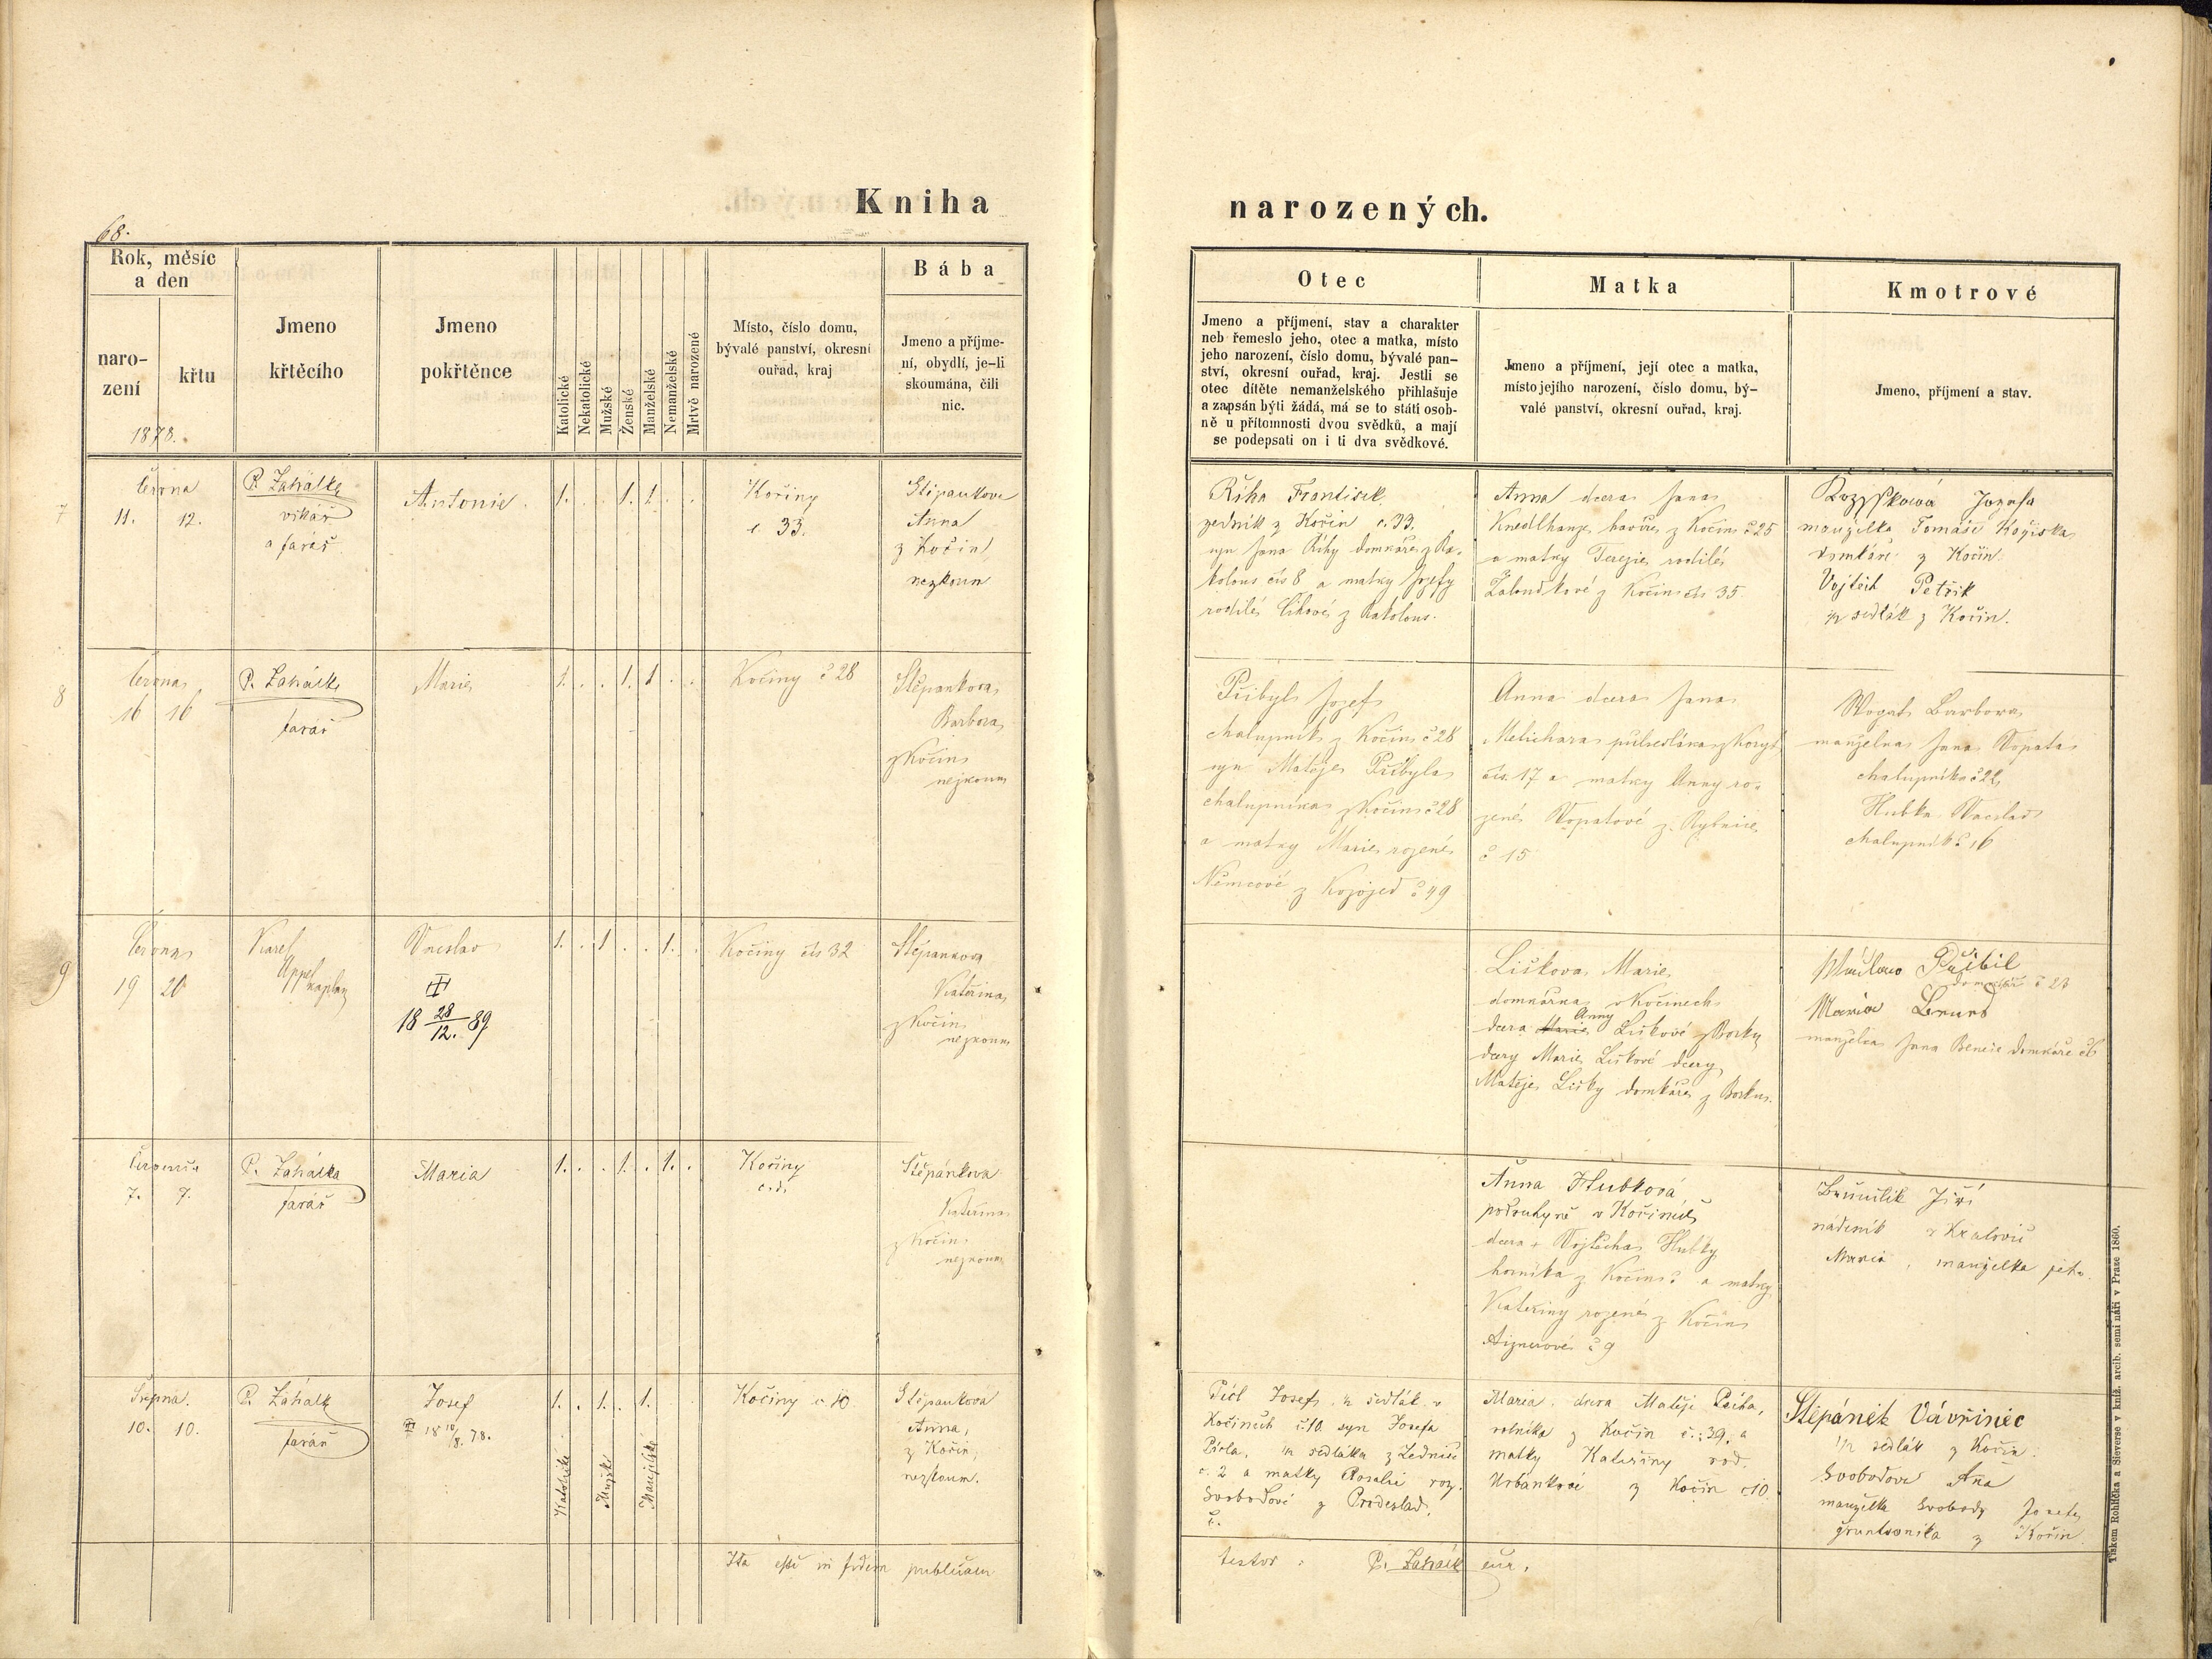 68.
Kniha narozených.
Rok, měsíc
a den
naro-
zení
křtu
1878.
Jmeno
křtěcího
Jmeno
pokřtěnce
Katolické
Nekatolické
Mužské
Ženské
Manželské
Nemanželské
Mrtvě narozené
Místo, číslo domu,
bývalé panství, okresní
ouřad, kraj
Bába
Jmeno a příjme-
ní, obydlí, je-li
skoumána, čili
nic.
Otec
Jmeno a příjmení, stav a charakter
neb řemeslo jeho, otec a matka, místo
jeho narození, číslo domu, bývalé pan-
ství, okresní ouřad, kraj. Jestli se
otec dítěte nemanželského přihlašuje
a zapsán býti žádá, má se to státi osob-
ně u přítomnosti dvou svědků, a mají
se podepsati on i ti dva svědkové.
Matka
Jmeno a příjmení, její otec a matka,
místo jejího narození, číslo domu, bý-
valé panství, okresní ouřad, kraj.
Kmotrové
Jmeno, příjmení a stav.
7
června
11. 12.
P. Zahálka
vikář
a farář
Antonie
1. . . 1. 1. . .
Kočiny
č. 33.
Štěpankova
Anna
z Kočin
nezkoum
Řiha František
zedník z Kočin č. 33.
syn Jana Řihy domkáře z Ra-
kolous čís 8 a matky Josefy
rodilé z Rakolous.
Anna dcera Jana
z Kočin č 25
a matky Terezie rodilé
z Kočin čís 35
Josefa
manželka Tomáše
domkáře z Kočin
Vojtěch Petřik
½ sedlák z Kočin.
8
června
16 16
P. Zahálka
farář
Marie
1. . . 1. 1 . .
Kočiny č 28
Štěpankova
Barbora
z Kočin
nezkoum
Přibyl Josef
chalupník z Kočin č 28
syn Matěje Přibyla
chalupníka z Kočin č 28
a matky Marie rozené
Němcové z Kozojed č 49
Anna dcera Jana
Melichara půlsedláka z
čís. 17 a matky Anny ro-
zené Vopatové z Rybnice
č 15
Barbora
manželka Jana Vopata
chalupníka č 22
Hubka Vacslav
chalupník č 16
9
června
19 20
Karel
Appel kaplan
Vacslav
18 28/12. 89
1. . 1 . . 1. .
Kočiny čís 32
Štěpankova
Kateřina
z Kočin
nezkoum
Liškova Marie
domkárka v Kočinech
dcera Marie Anny Liškové z Borku
dcery Marie Liškové dcery
Matěje Lišky domkáře z Borku.
Přibil
domkář č 23
Maria
manželka Jana Beneše domkáře č 6
července
7. 7.
P. Zahálka
farář
Maria
1. . . 1. . 1. .
Kočiny
Štěpánkova
Kateřina
z Kočin
nezkoum
Anna Hubková
podruhyně v Kočinech
dcera Vojtěcha Hubky
horníka z Kočin a matky
Kateřiny rozené z Kočin
č 9
Jiří
nádeník v Kralovic
Maria, manželka jeho.
Srpna.
10. 10.
P. Zahálka
farář
Josef
18 10/8. 78.
1. . 1. . 1.
Katolické
Mužské
Manželské
Kočiny č. 10
Štěpankova
Anna,
z Kočin,
nezkoum.
Josef, ½ sedlák v
Kočinech č. 10. syn Josefa
½ sedláka z Lednice
č. 2 a matky Rosalie roz.
Svobodové z
č.
Maria, dcera Matěje
rolníka z Kočin č. 39. a
matky Kateřiny rod.
Urbankové z Kočin č 10
Štěpánek Vavřinec
½ sedlák z Kočin.
Svobodova Anna
manželka Svobody Josefa
gruntovníka z Kočin
Ita esse in fidem publicam testor: P. Zahálk cur.
Tiskem Rohlíčka a Sieverse v kníž. arcib. semináři v Praze 1860.